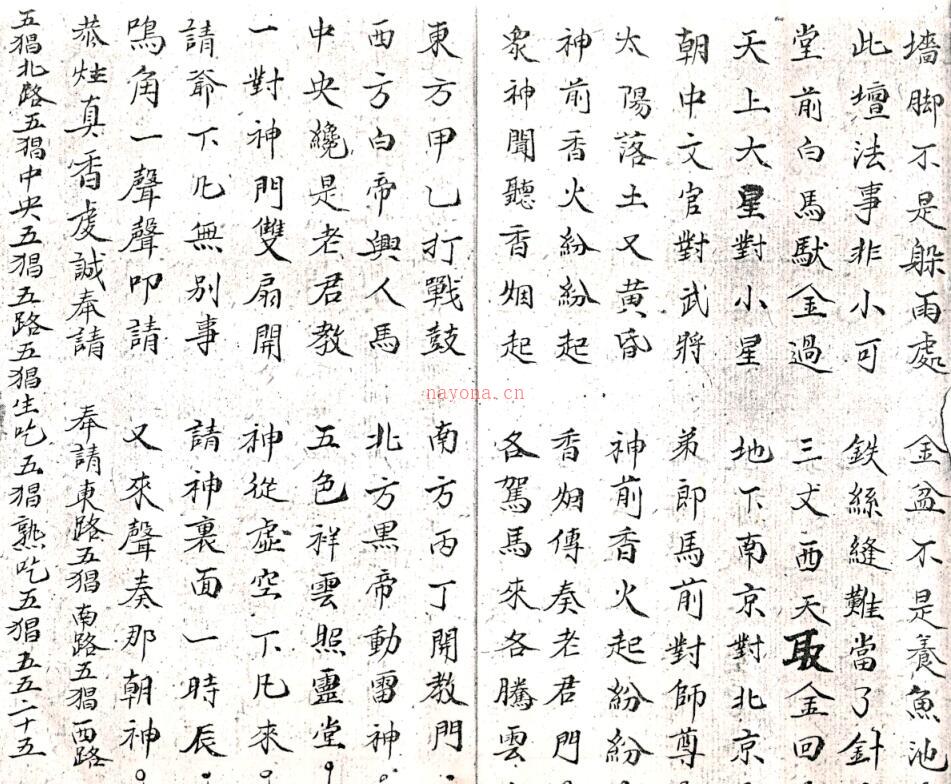 墻脚不是躲雨處 金盆不是養魚池
此壇法事非小可 鉄絲縫難當了針
堂前白馬馱金過 三丈西天取金回
天上大星對小星 地下南京對北京
朝中文官對武將 弟郎馬前對師尊
太陽落土又黄昏 神前香火起紛紛
神前香火紛紛起 香烟傳奏老君門
衆神聞聽香烟起 各駕馬來各騰雲
東方甲乙打戰鼓 南方丙丁開教門
西方白帝興人馬 北方黒帝動雷神
中央纔是老君教 五色祥雲照靈堂
一對神門雙扇開 神從虛空下凡來
請爺下凡無别事 請神裏面一時辰
鳴角一聲聲叩請 又來聲奏那朝神
恭炷真香虔誠奉請 奉請東路五猖南路五猖西路
五猖北路五猖中央五猖五路五猖生吃五猖熟吃五猖五五二十五
nayona.cn